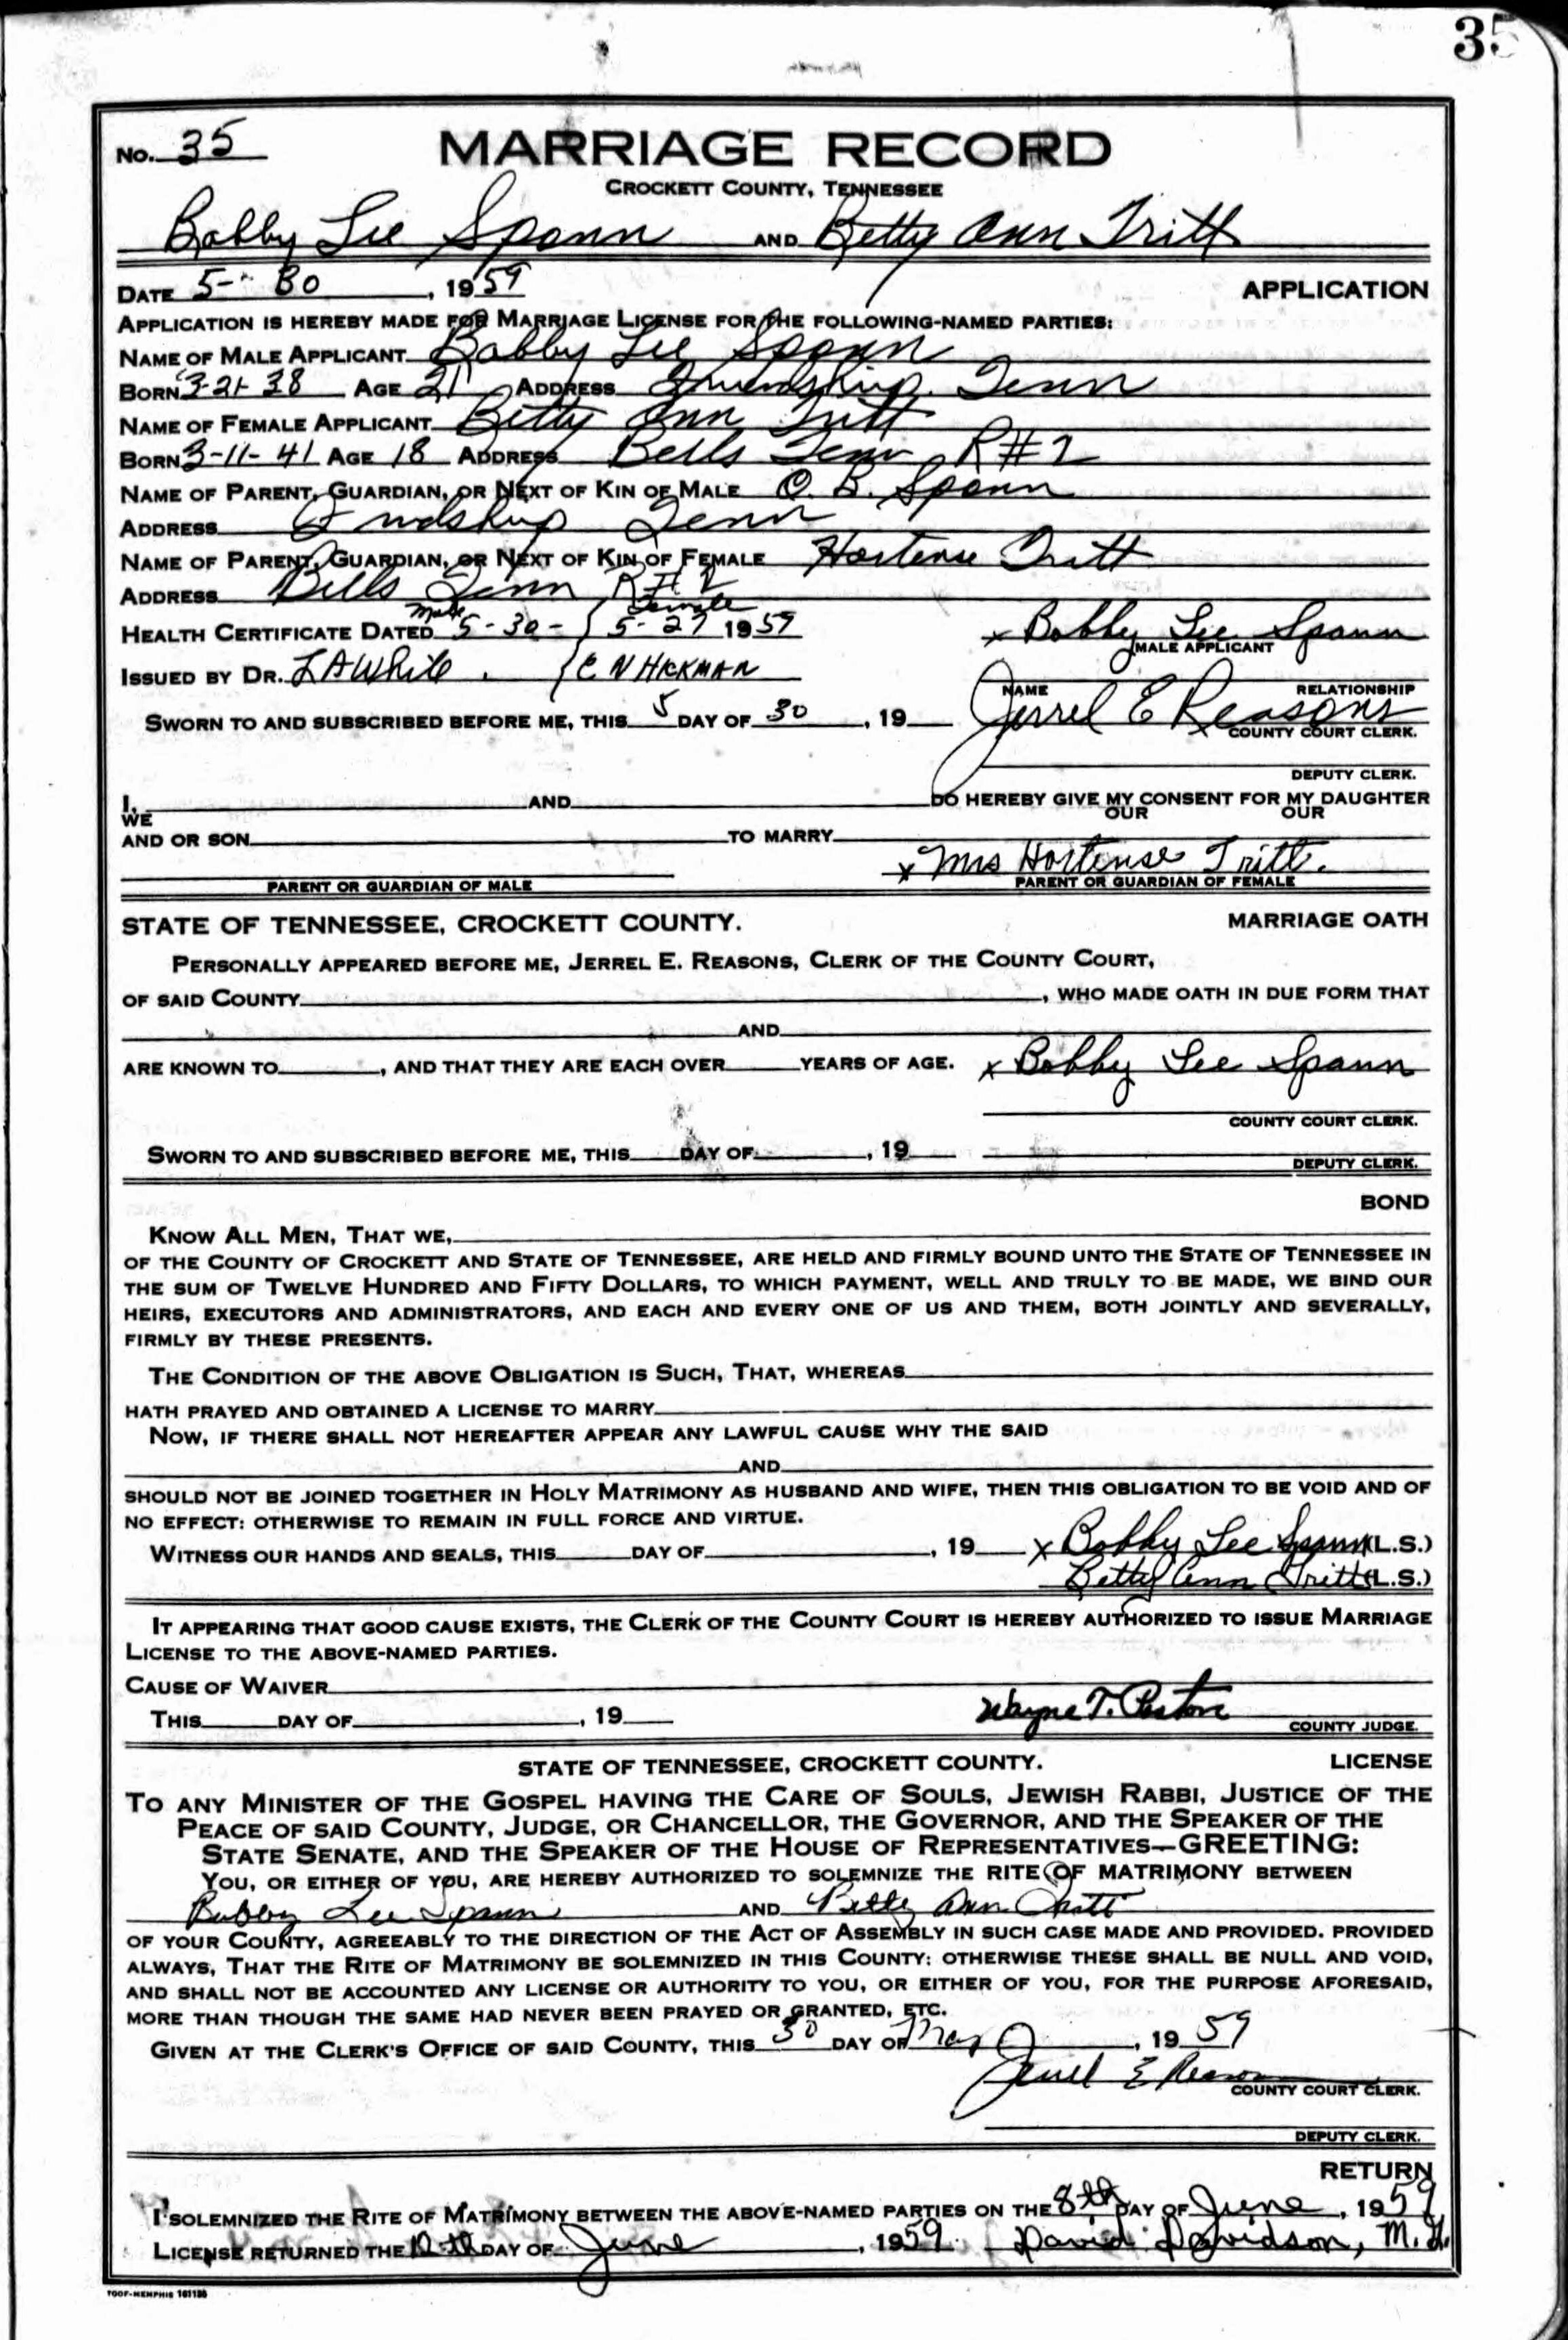 35
No. 35
MARRIAGE RECORD
CROCKETT COUNTY, TENNESSEE
Bobby Lee Spann AND Betty Ann Tritt
DATE 5- 30, 1959 APPLICATION
APPLICATION IS HEREBY MADE FOR MARRIAGE LICENSE FOR THE FOLLOWING-NAMED PARTIES:
NAME OF MALE APPLICANT Bobby Lee Spann
BORN 3-21-38 AGE 21 ADDRESS Friendship Tenn
NAME OF FEMALE APPLICANT Betty Ann Tritt
BORN 3-11-41 AGE 18 ADDRESS Bells Tenn R#2
NAME OF PARENT, GUARDIAN, OR NEXT OF KIN OF MALE O. B. Spann
ADDRESS Frndship Tenn
NAME OF PARENT, GUARDIAN, OR NEXT OF KIN OF FEMALE Hortense Tritt
ADDRESS Bells Tenn R#2
male female
HEALTH CERTIFICATE DATED 5-30- 5-27 1959 x Bobby Lee Spann
MALE APPLICANT
ISSUED BY DR. L A White. C N HICKMAN
NAME RELATIONSHIP
SWORN TO AND SUBSCRIBED BEFORE ME, THIS 5 DAY OF 30, 19 Jerrel E Reasons
COUNTY COURT CLERK.
DEPUTY CLERK.
I, AND DO HEREBY GIVE MY CONSENT FOR MY DAUGHTER
WE OUR OUR
AND OR SON TO MARRY
x Mrs Hortense Tritt.
PARENT OR GUARDIAN OF MALE PARENT OR GUARDIAN OF FEMALE
STATE OF TENNESSEE, CROCKETT COUNTY. MARRIAGE OATH
PERSONALLY APPEARED BEFORE ME, JERREL E. REASONS, CLERK OF THE COUNTY COURT,
OF SAID COUNTY, WHO MADE OATH IN DUE FORM THAT
AND
ARE KNOWN TO, AND THAT THEY ARE EACH OVER YEARS OF AGE. x Bobby Lee Spann
COUNTY COURT CLERK.
SWORN TO AND SUBSCRIBED BEFORE ME, THIS DAY OF, 19
DEPUTY CLERK.
BOND
KNOW ALL MEN, THAT WE,
OF THE COUNTY OF CROCKETT AND STATE OF TENNESSEE, ARE HELD AND FIRMLY BOUND UNTO THE STATE OF TENNESSEE IN
THE SUM OF TWELVE HUNDRED AND FIFTY DOLLARS, TO WHICH PAYMENT, WELL AND TRULY TO BE MADE, WE BIND OUR
HEIRS, EXECUTORS AND ADMINISTRATORS, AND EACH AND EVERY ONE OF US AND THEM, BOTH JOINTLY AND SEVERALLY,
FIRMLY BY THESE PRESENTS.
THE CONDITION OF THE ABOVE OBLIGATION IS SUCH, THAT, WHEREAS
HATH PRAYED AND OBTAINED A LICENSE TO MARRY
NOW, IF THERE SHALL NOT HEREAFTER APPEAR ANY LAWFUL CAUSE WHY THE SAID
AND
SHOULD NOT BE JOINED TOGETHER IN HOLY MATRIMONY AS HUSBAND AND WIFE, THEN THIS OBLIGATION TO BE VOID AND OF
NO EFFECT: OTHERWISE TO REMAIN IN FULL FORCE AND VIRTUE.
WITNESS OUR HANDS AND SEALS, THIS DAY OF, 19 x Bobby Lee Spann (L.S.)
Betty Ann Tritt (L.S.)
IT APPEARING THAT GOOD CAUSE EXISTS, THE CLERK OF THE COUNTY COURT IS HEREBY AUTHORIZED TO ISSUE MARRIAGE
LICENSE TO THE ABOVE-NAMED PARTIES.
CAUSE OF WAIVER
THIS DAY OF, 19 Wayne T.
COUNTY JUDGE.
STATE OF TENNESSEE, CROCKETT COUNTY. LICENSE
TO ANY MINISTER OF THE GOSPEL HAVING THE CARE OF SOULS, JEWISH RABBI, JUSTICE OF THE
PEACE OF SAID COUNTY, JUDGE, OR CHANCELLOR, THE GOVERNOR, AND THE SPEAKER OF THE
STATE SENATE, AND THE SPEAKER OF THE HOUSE OF REPRESENTATIVES—GREETING:
YOU, OR EITHER OF YOU, ARE HEREBY AUTHORIZED TO SOLEMNIZE THE RITE OF MATRIMONY BETWEEN
Bobby Lee Spann AND Betty Ann Tritt
OF YOUR COUNTY, AGREEABLY TO THE DIRECTION OF THE ACT OF ASSEMBLY IN SUCH CASE MADE AND PROVIDED. PROVIDED
ALWAYS, THAT THE RITE OF MATRIMONY BE SOLEMNIZED IN THIS COUNTY: OTHERWISE THESE SHALL BE NULL AND VOID,
AND SHALL NOT BE ACCOUNTED ANY LICENSE OR AUTHORITY TO YOU, OR EITHER OF YOU, FOR THE PURPOSE AFORESAID,
MORE THAN THOUGH THE SAME HAD NEVER BEEN PRAYED OR GRANTED, ETC.
GIVEN AT THE CLERK'S OFFICE OF SAID COUNTY, THIS 30 DAY OF May, 1959
Jerrel E Reasons
COUNTY COURT CLERK.
DEPUTY CLERK.
RETURN
I SOLEMNIZED THE RITE OF MATRIMONY BETWEEN THE ABOVE-NAMED PARTIES ON THE 8th DAY OF June, 1959
LICENSE RETURNED THE 12th DAY OF June, 1959. David Davidson, M.G.
TOOF-MEMPHIS 161135